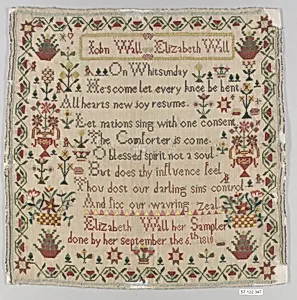 John Wall Elizabeth Wall
On Whitsunday
He's come let every knee be bent
All hearts new joy resume
Let nations sing with one consent
The Comforter is come
O blessed spirit not a soul
But does thy influence feel
Thou dost our darling sins control
And fix our wavring zeal
Elizabeth Wall her Sampler
done by her september the 6th 1816
57.122.347